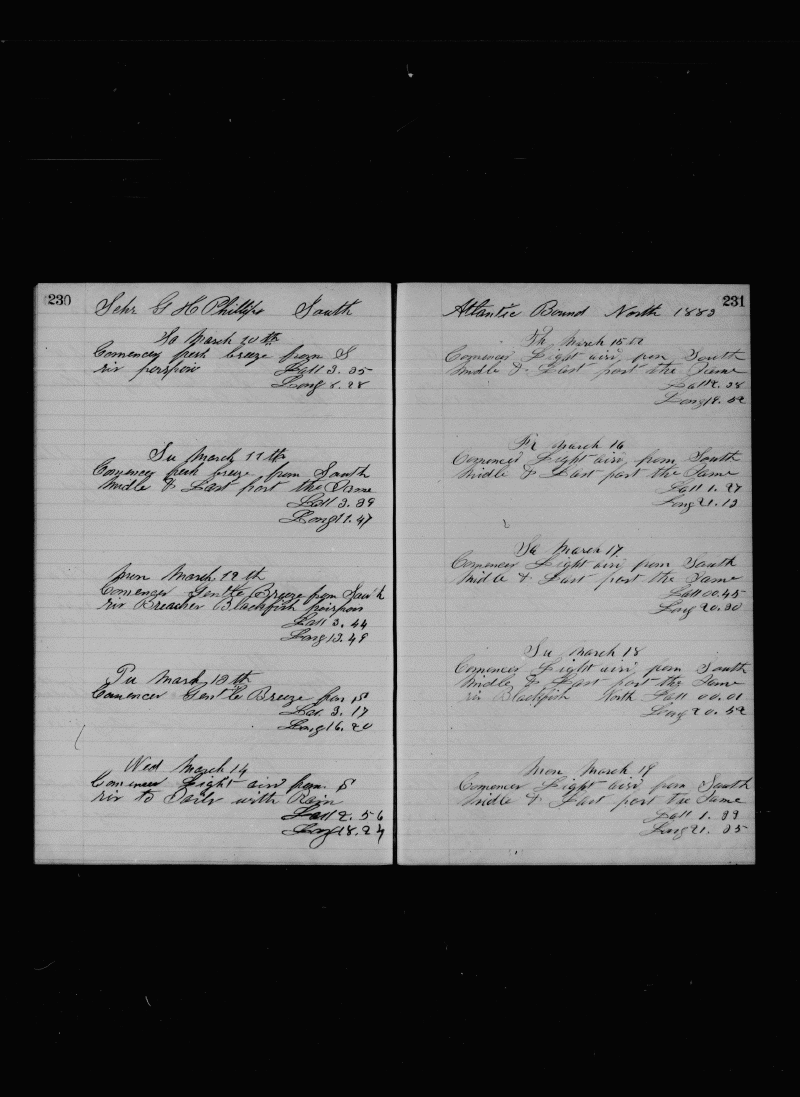 230
Schr G H Phillips South
Sa March 10th
Comencey fresh breeze from S
Latt 3. 35
Long 8. 28
Su March 11th
Comencey fresh breeze from South
Midle & Last part the Same
Latt 3. 39
Long 11. 47
Mon March 12th
Comencer Gentle Breeze from South
Blackfish
Latt 3. 44
Long 13. 49
Tu March 13th
Comencer Gentle Breeze from S
Lat 3. 17
Long 16. 20
Wed March 14
Comencer Light airs from S
to Sails with Rain
Latt 2. 56
Long 18. 24
231
Atlantic Bound North 1883
Th March 15
Comencer Light airs from South
Midle & Last part the Same
Latt 2. 28
Long 19. 52
Fr March 16
Comencer Light airs from South
Midle & Last part the Same
Latt 1. 27
Long 21. 13
Sa March 17
Comencer Light airs from South
Midle & Last part the Same
Latt 00. 45
Long 20. 30
Su March 18
Comencer Light airs from South
Midle & Last part the Same
Blackfish North Latt 00. 01
Long 20. 52
Mon March 19
Comencer Light airs from South
Midle & Last part the Same
Latt 1. 39
Long 21. 35